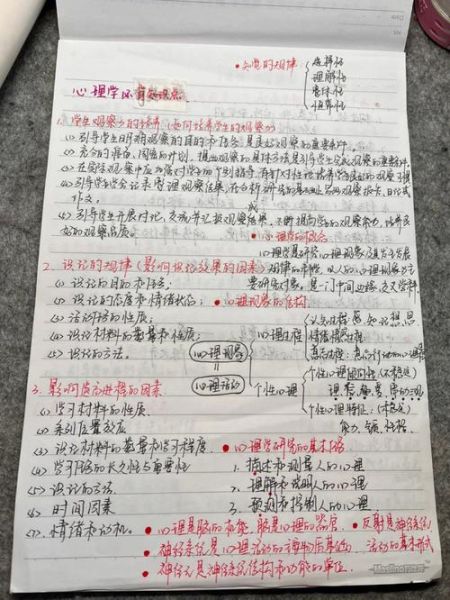 • 知觉的规律
选择性
理解性
整体性
恒常性
心理学
1. 学生观察力的培养（如何培养学生的观察力）
(1) 引导学生明确观察的目的和任务，是良好观察的重要条件。
(2) 充分的准备、周密的计划、提出观察的具体方法是引导学生完成观察的重要条件。
(3) 在实际观察中应加强对学生的个别指导，有针对性地培养学生良好的观察习惯
(4) 引导学生学会记录整理观察结果，在分析研究的基础上写出观察报告、日记或
作文。
(5) 引导学生开展讨论，交流并汇报观察成果，不断提高学生的观察能力，培养良
好的观察品质。
• 心理学的概念
心理学是研究心理现象
2. 识记的规律（影响识记效果的因素）
规律的科学，以人的心理现象为主
要研究对象，是一门中间边缘交叉学科
(1) 识记的目的和任务；
(2) 识记的态度和情绪状态；
• 心理现象的结构
(3) 活动任务的性质；
(4) 识记材料的数量和性质；
(5) 识记的方法。
心理现象
=
心理活动
心理过程
认识过程：感、知、记、想、思
情绪情感过程
意志过程：
个性心理
个性心理倾向性（不稳定）
需、动、
个性心理特征：（稳定）
能力、气质、性格
3. 影响遗忘进程的因素
(1) 学习材料的性质
(2) 系列位置效应
(3) 识记材料的数量和学习程度
(4) 学习任务的长久性与重要性
(5) 识记的方法
(6) 时间因素
(7) 情绪和动机。
• 心理学研究的基本任务
1. 描述和测量人的心理
2. 理解和说明人的心理
3. 预测和控制人的心理
• 心理是脑的机能，脑是心理的器官。
• 反射是神经系统
活动的基本形式
• 神经系统是心理活动的物质基础。
• 神经元是神经系统结构和功能的单位。